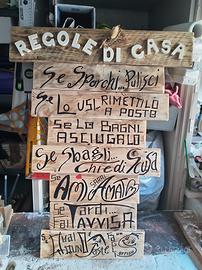 REGOLE DI CASA
Se Sporchi... Pulisci
Se Lo USI RIMETTILO
A POSTO
Se Lo BAGNI
ASCIUGALO
Se Sbagli...
Chiedi Scusa
Se AMI
Se
Fai AVVISA